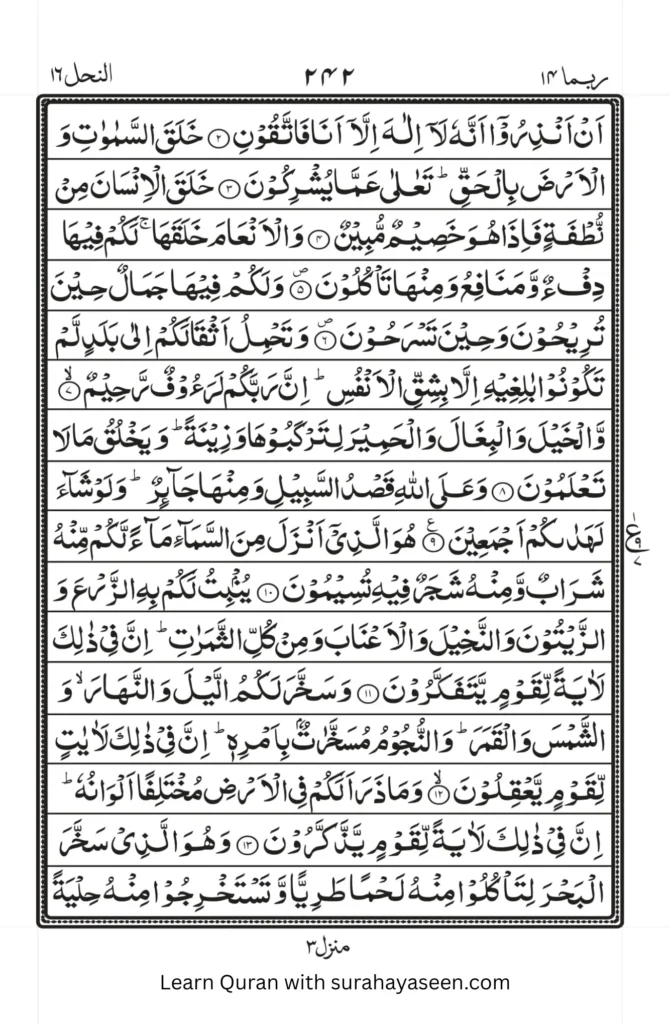 النحل ١٦ ٢٤٢ ربما ١٤
اَنْ اَنْذِرُوْۤا اَنَّهٗ لَاۤ اِلٰهَ اِلَّاۤ اَنَا فَاتَّقُوْنِ ﴿۲﴾ خَلَقَ السَّمٰوٰتِ وَ
الْاَرْضَ بِالْحَقِّ ؕ تَعٰلٰى عَمَّا يُشْرِكُوْنَ ﴿۳﴾ خَلَقَ الْاِنْسَانَ مِنْ
نُّطْفَةٍ فَاِذَا هُوَ خَصِيْمٌ مُّبِيْنٌ ﴿۴﴾ وَالْاَنْعَامَ خَلَقَهَا ۚ لَكُمْ فِيْهَا
دِفْءٌ وَّمَنَافِعُ وَمِنْهَا تَاْكُلُوْنَ ﴿۵﴾ۖ وَلَكُمْ فِيْهَا جَمَالٌ حِيْنَ
تُرِيْحُوْنَ وَحِيْنَ تَسْرَحُوْنَ ﴿۶﴾ۖ وَتَحْمِلُ اَثْقَالَكُمْ اِلٰى بَلَدٍ لَّمْ
تَكُوْنُوْا بٰلِغِيْهِ اِلَّا بِشِقِّ الْاَنْفُسِ ؕ اِنَّ رَبَّكُمْ لَرَءُوْفٌ رَّحِيْمٌ ﴿۷﴾ۙ
وَّالْخَيْلَ وَالْبِغَالَ وَالْحَمِيْرَ لِتَرْكَبُوْهَا وَزِيْنَةً ؕ وَيَخْلُقُ مَا لَا
تَعْلَمُوْنَ ﴿۸﴾ وَعَلَى اللّٰهِ قَصْدُ السَّبِيْلِ وَمِنْهَا جَآئِرٌ ؕ وَلَوْ شَآءَ
لَهَدٰىكُمْ اَجْمَعِيْنَ ﴿۹﴾ هُوَ الَّذِيْۤ اَنْزَلَ مِنَ السَّمَآءِ مَآءً لَّكُمْ مِّنْهُ
شَرَابٌ وَّمِنْهُ شَجَرٌ فِيْهِ تُسِيْمُوْنَ ﴿۱۰﴾ يُنْۢبِتُ لَكُمْ بِهِ الزَّرْعَ وَ
الزَّيْتُوْنَ وَالنَّخِيْلَ وَالْاَعْنَابَ وَمِنْ كُلِّ الثَّمَرٰتِ ؕ اِنَّ فِيْ ذٰلِكَ
لَاٰيَةً لِّقَوْمٍ يَّتَفَكَّرُوْنَ ﴿۱۱﴾ وَسَخَّرَ لَكُمُ الَّيْلَ وَالنَّهَارَ ۙ وَ
الشَّمْسَ وَالْقَمَرَ ؕ وَالنُّجُوْمُ مُسَخَّرٰتٌۢ بِاَمْرِهٖ ؕ اِنَّ فِيْ ذٰلِكَ لَاٰيٰتٍ
لِّقَوْمٍ يَّعْقِلُوْنَ ﴿۱۲﴾ۙ وَمَا ذَرَاَ لَكُمْ فِى الْاَرْضِ مُخْتَلِفًا اَلْوَانُهٗ ؕ
اِنَّ فِيْ ذٰلِكَ لَاٰيَةً لِّقَوْمٍ يَّذَّكَّرُوْنَ ﴿۱۳﴾ وَهُوَ الَّذِيْ سَخَّرَ
الْبَحْرَ لِتَاْكُلُوْا مِنْهُ لَحْمًا طَرِيًّا وَّتَسْتَخْرِجُوْا مِنْهُ حِلْيَةً
منزل ٣
Learn Quran with surahayaseen.com